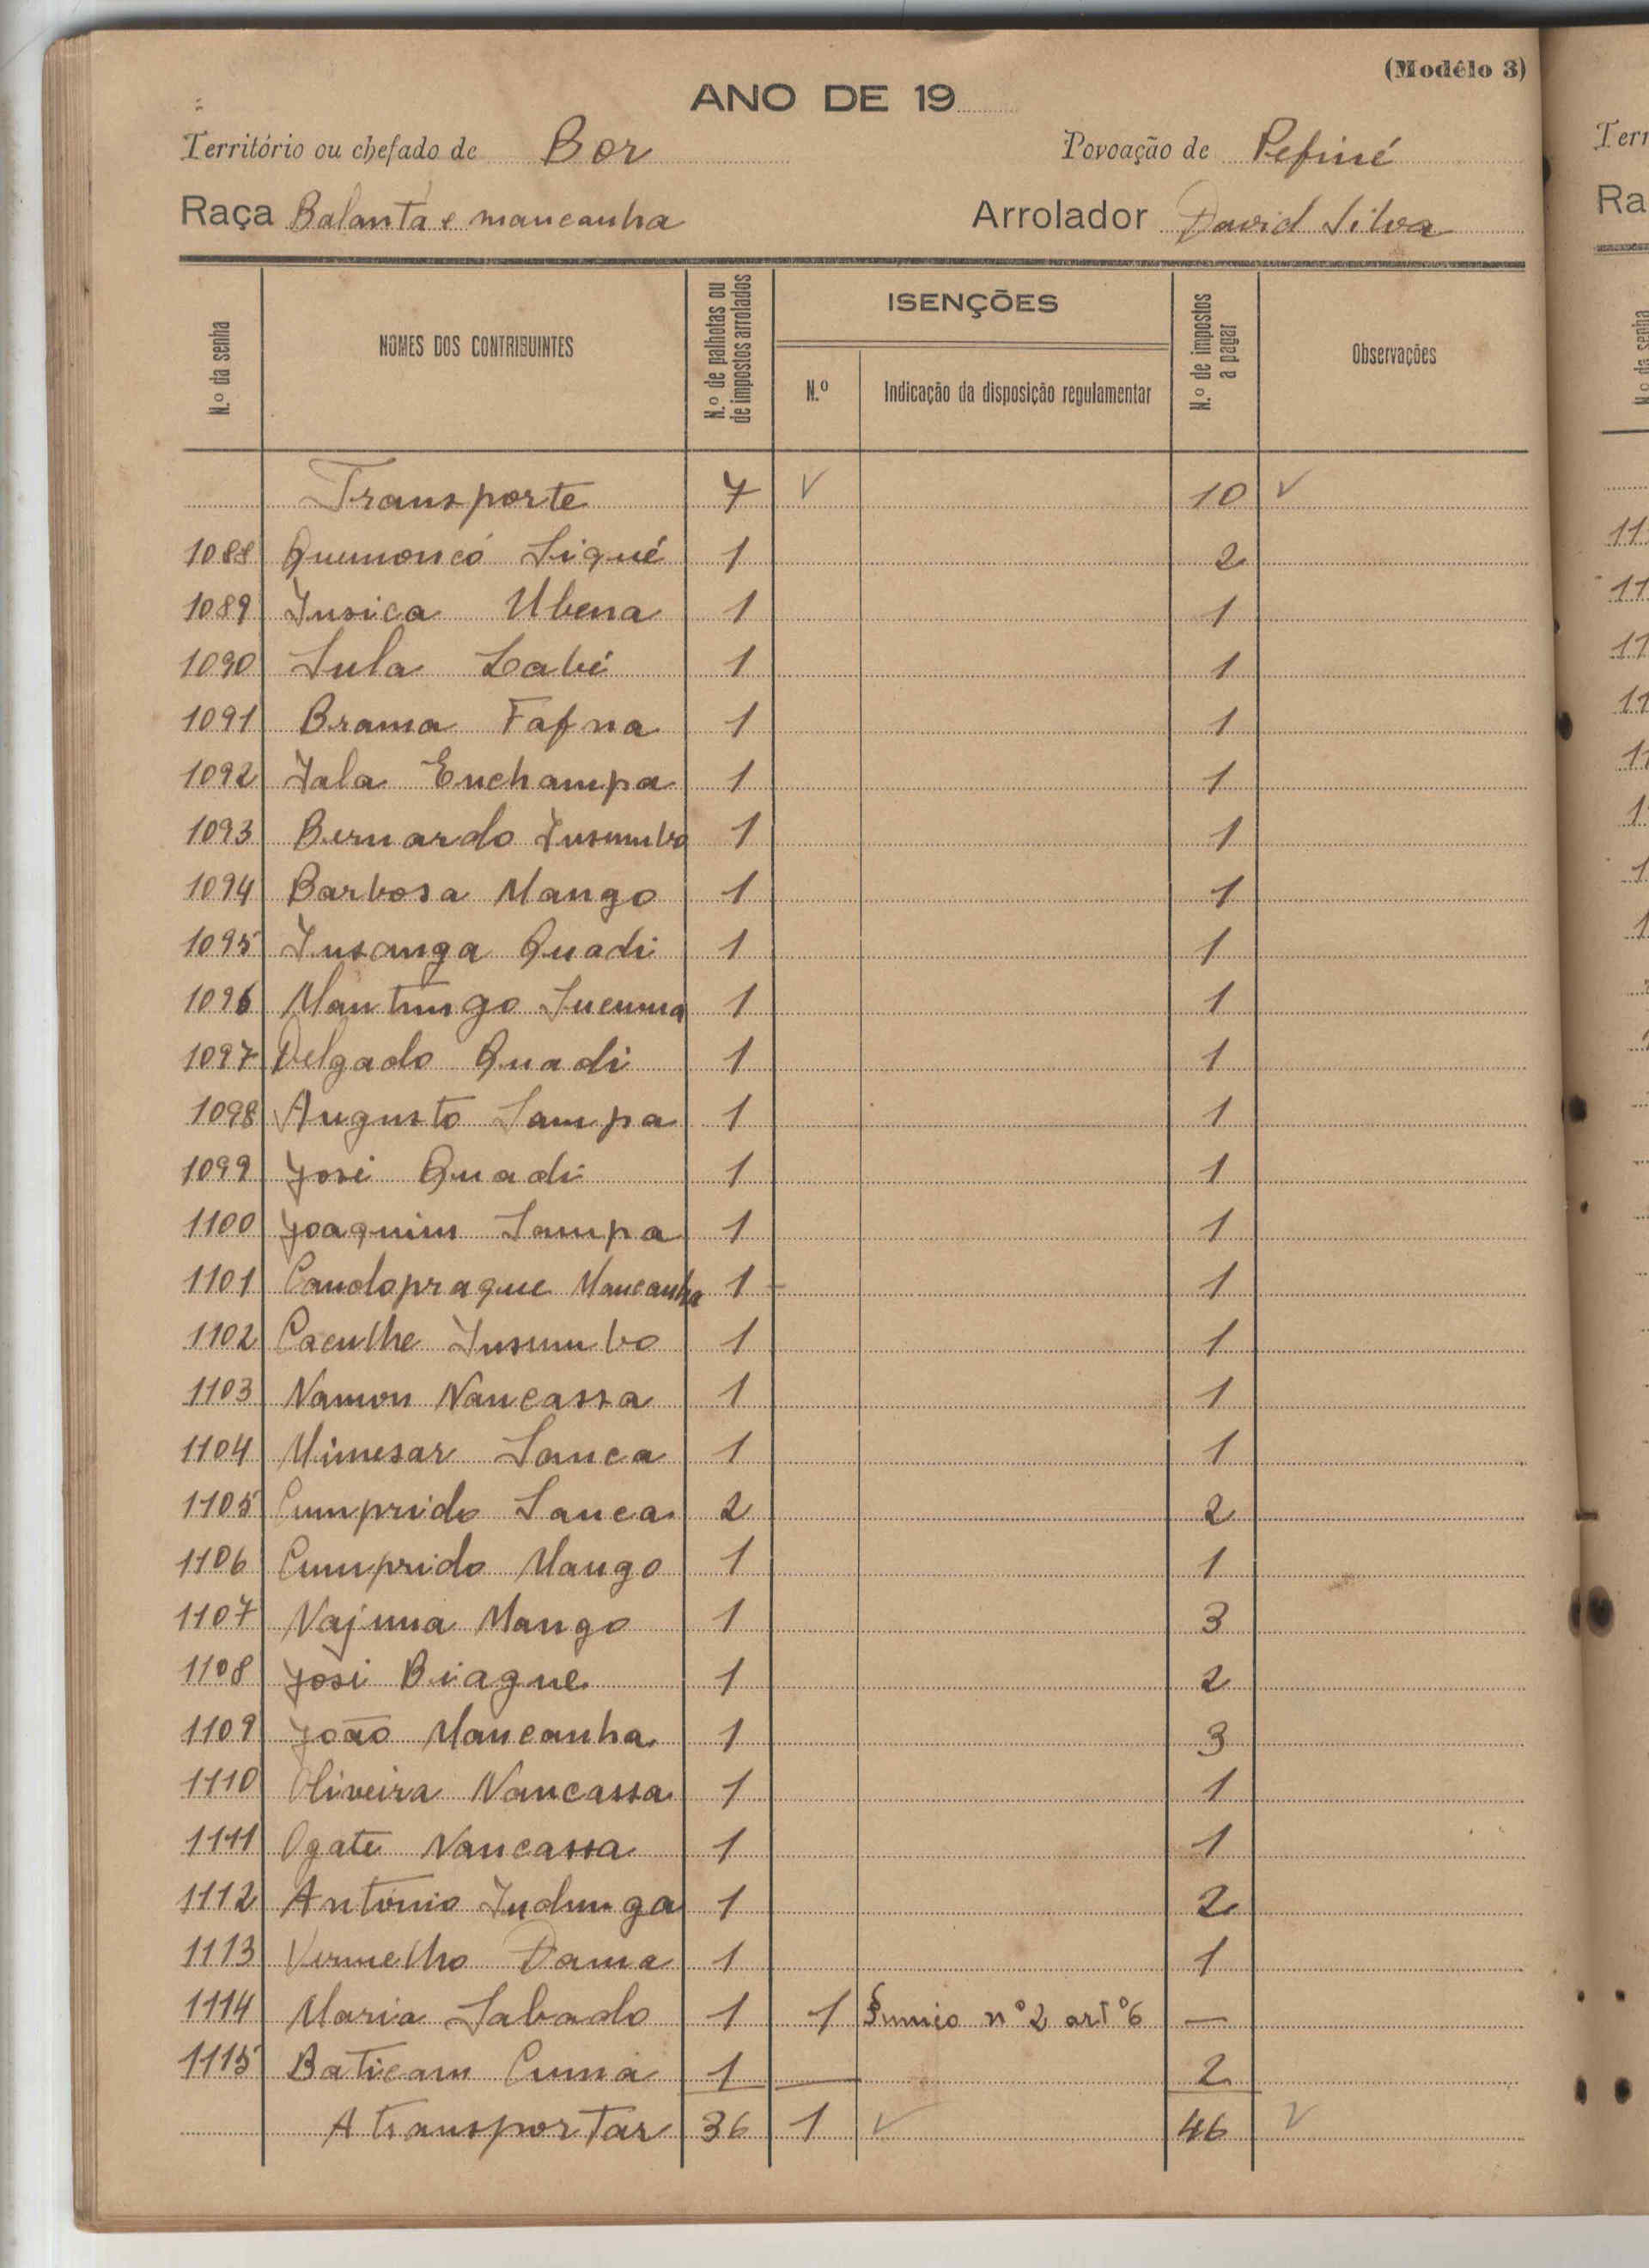 (Modêlo 3)
ANO DE 19
Território ou chefado de Bor Povoação de Pefiné
Raça Balanta e mancanha Arrolador David Silva
N.º da senha
NOMES DOS CONTRIBUINTES
N.º de palhotas ou de impostos arrolados
ISENÇÕES
N.º
Indicação da disposição regulamentar
N.º de impostos a pagar
Observações
Transporte 7 ✓ 10 ✓
1088 Quemoncó Siqué 1 2
1089 Insica Ubena 1 1
1090 Sula Labé 1 1
1091 Brama Fafna 1 1
1092 Iala Enchampa 1 1
1093 Bernardo Insumbo 1 1
1094 Barbosa Mango 1 1
1095 Insanga Quadi 1 1
1096 Mantungo 1 1
1097 Delgado Quadi 1 1
1098 Augusto Sampa 1 1
1099 José Quadi 1 1
1100 Joaquim Sampa 1 1
1101 Candopraque Mancanha 1 1
1102 Caculhe Insumbo 1 1
1103 Namon Nancassa 1 1
1104 Mimesar Sanca 1 1
1105 Cumprido Sanca 2 2
1106 Cumprido Mango 1 1
1107 Najuma Mango 1 3
1108 José Biague 1 2
1109 João Mancanha 1 3
1110 Oliveira Nancassa 1 1
1111 Ogate Nancassa 1 1
1112 António Indunga 1 2
1113 Vermelho Dama 1 1
1114 Maria Sabado 1 1 § unico nº 2 artº 6 —
1115 Baticam Cumá 1 — 2
A transportar 36 1 ✓ 46 ✓